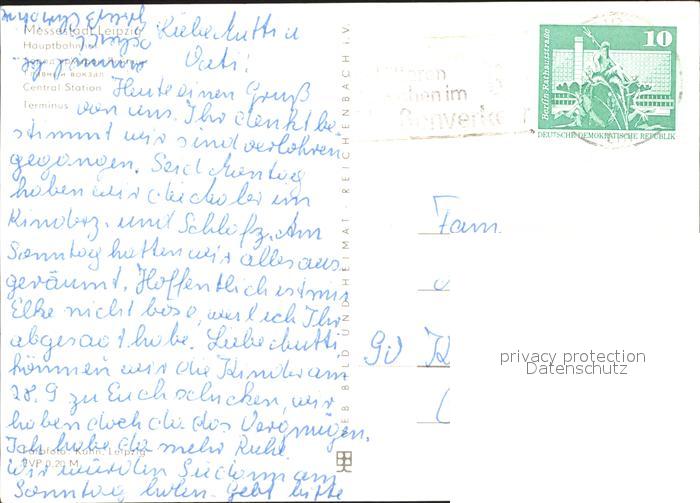 Messestadt Leipzig
Hauptbahnhof
Central Station
Terminus
Liebe Mutti u
Vati!
Heute einen Gruß
von uns. Ihr denkt be
stimmt wir sind verlohren
gegangen. Seid Montag
haben wir die Maler im
Kinderz. und Schlafz. Am
Sonntag hatten wir alles aus
geräumt. Hoffentlich ist mir
Elke nicht böse, weil ich Ihr
abgesagt habe. Liebe Mutti,
können wir die Kinder am
28.9 zu Euch schicken, wir
haben doch da das Vergnügen.
Ich habe da mehr Ruhe.
Wir würden Sie dann am
Sonntag holen. Gebt bitte
Farbfoto: Kühn, Leipzig
EVP 0,20 M
VEB BILD UND HEIMAT · REICHENBACH I. V.
Berlin-Rathausstraße
10
DEUTSCHE DEMOKRATISCHE REPUBLIK
Fam.
privacy protection
Datenschutz